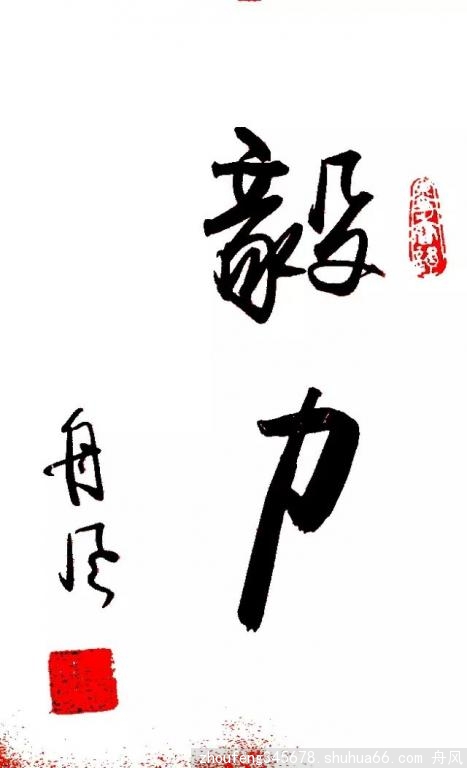 毅力
舟风
zhoufeng345678，shuhua66.com 舟风